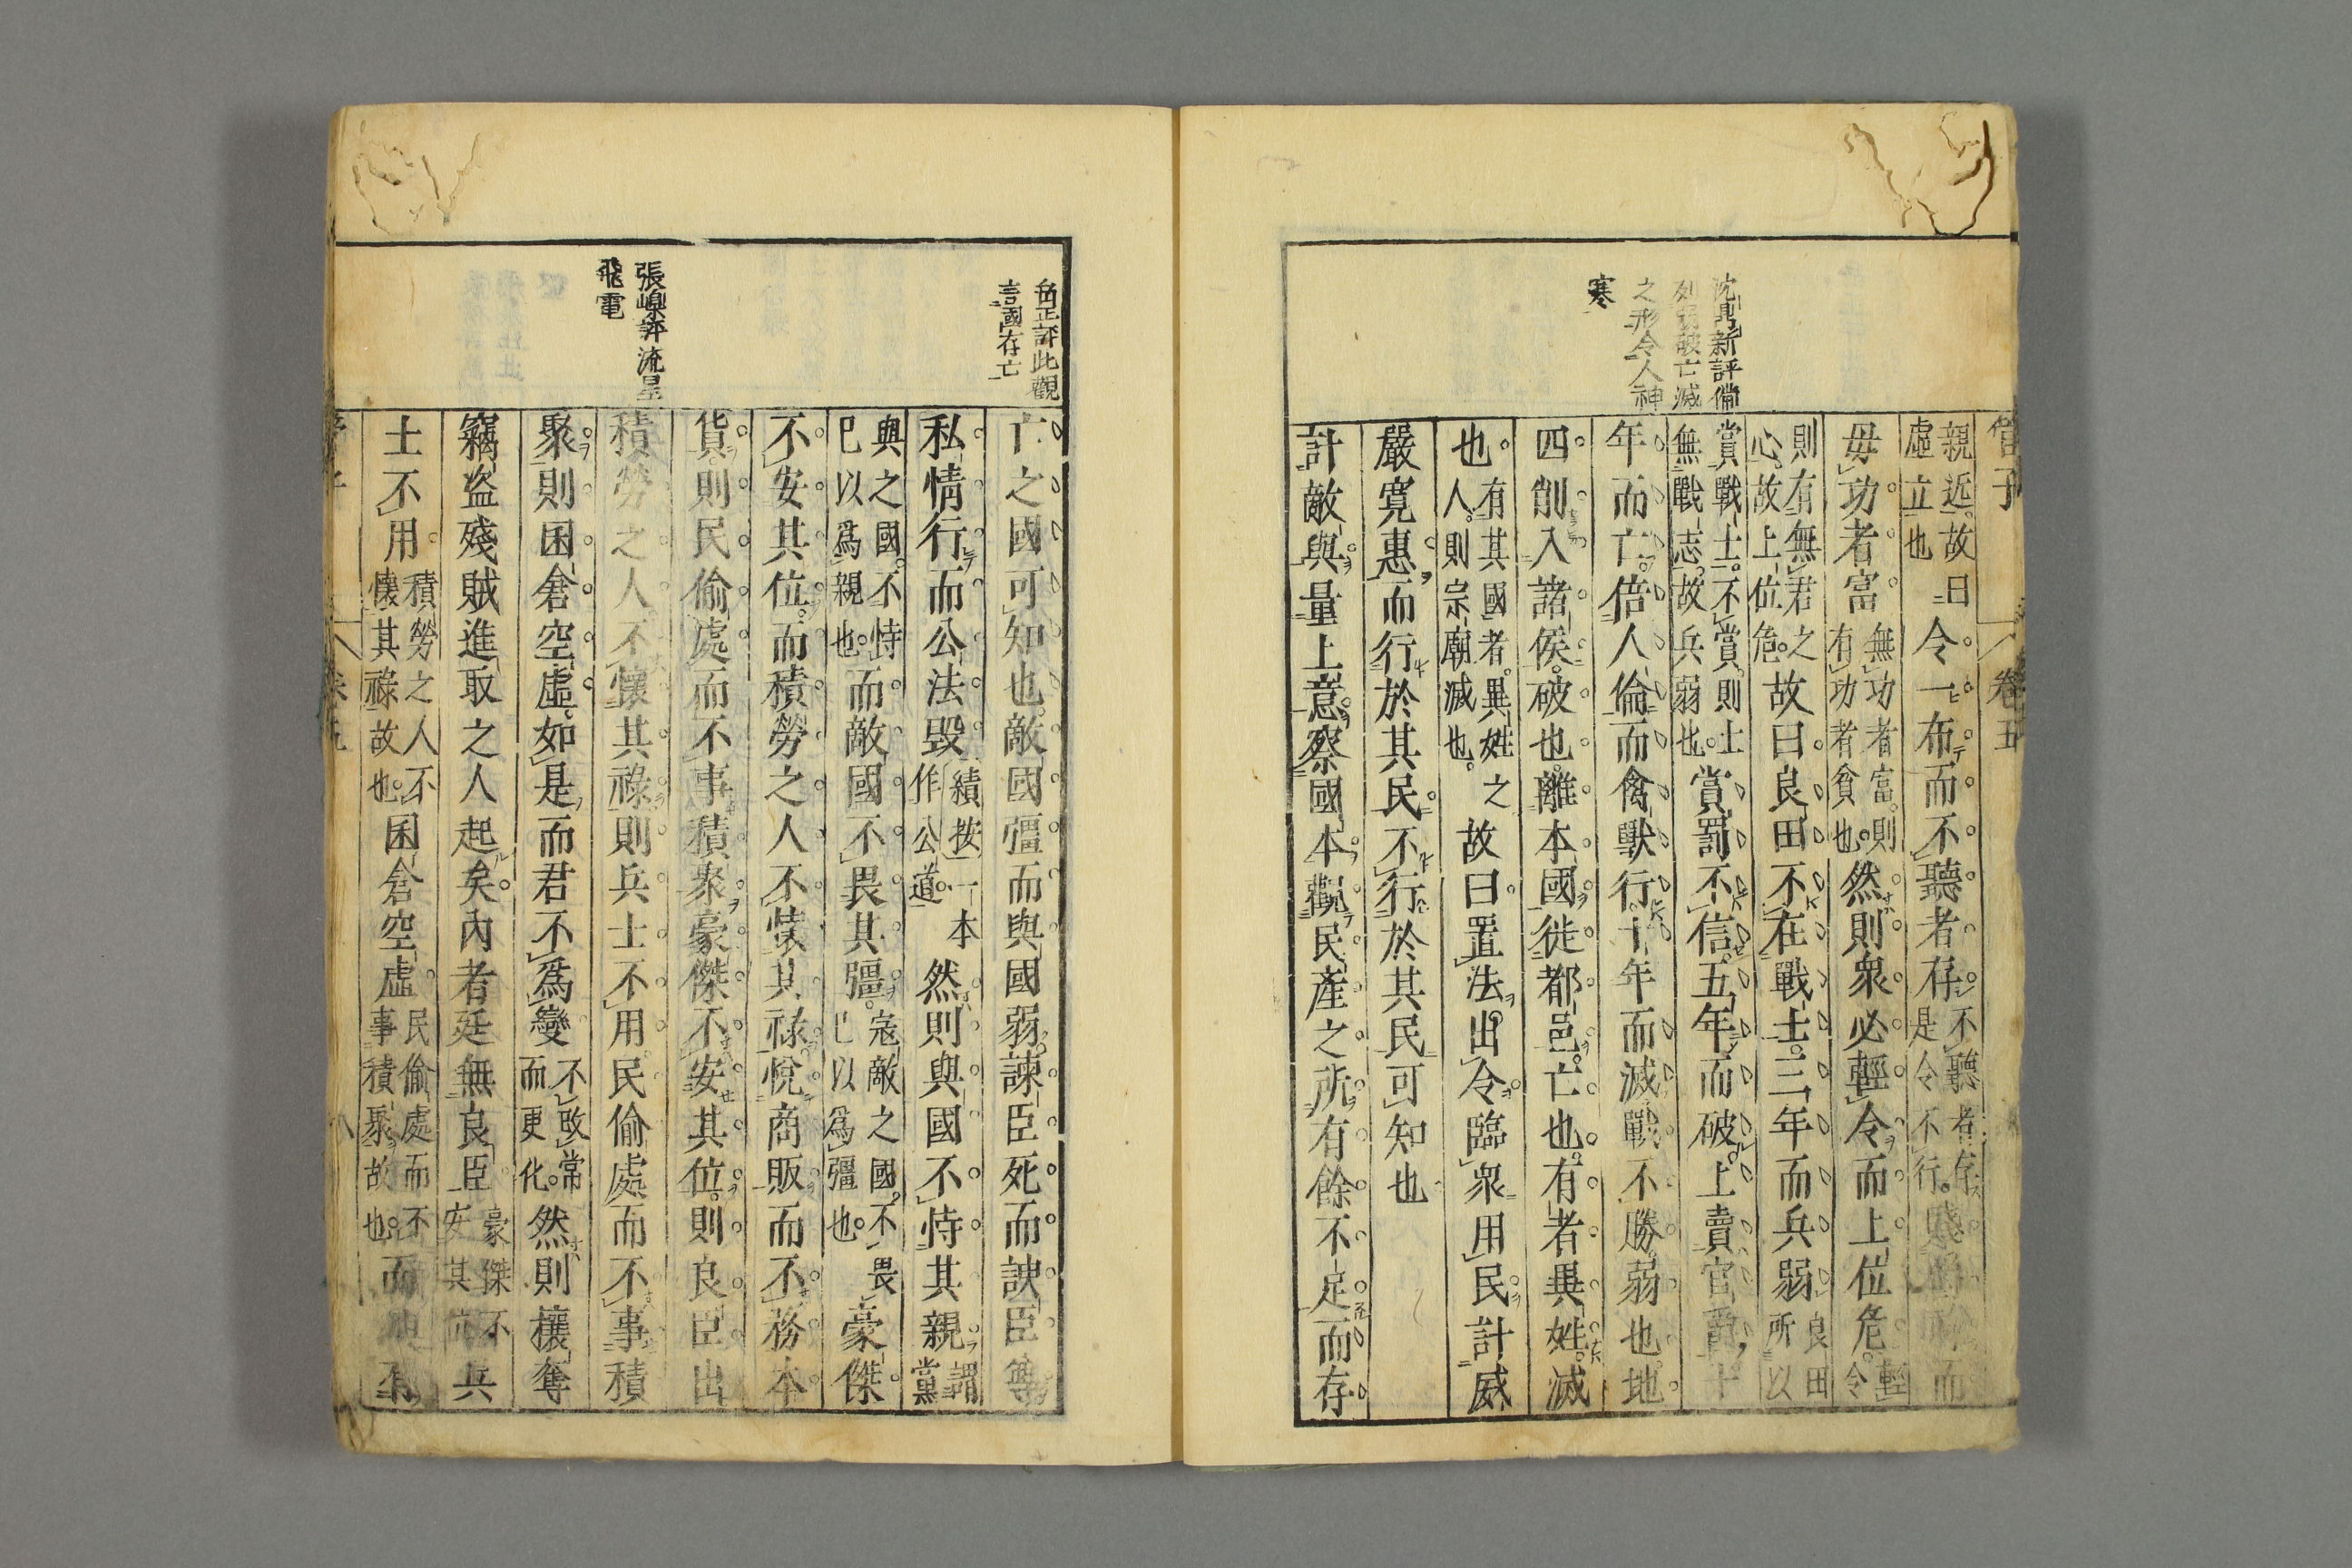 管子
卷五
沈鼎新評備
列弱破亡滅
之形令人神
寒
親近故曰
虛立也
令一布而不聽者存
不聽者存
是令不行
賤爵祿而
毋功者富
無功者富則
有功者貧也
然則衆必輕令而上位危
輕
令
則有無君之
心故上位危
故曰良田不在戰士三年而兵弱
良田
所以
賞戰士不賞則士
無戰志故兵弱也
賞罰不信五年而破上賣官爵十
年而亡倍人倫而禽獸行十年而滅戰不勝弱也地
四削入諸侯破也離本國徙都邑亡也有者異姓滅
也
有其國者異姓之
人則宗廟滅也
故曰置法出令臨衆用民計威
嚴寛惠而行於其民不行於其民可知也
計敵與量上意察國本觀民產之所有餘不足而存
正評此觀
言國存亡
張嵲評流星
飛電
亡之國可知也敵國彊而與國弱諫臣死而諛臣尊
私情行而公法毀
績按一本
作公道
然則與國不恃其親
謂
黨
與之國不恃
已以爲親也
而敵國不畏其彊
寇敵之國不畏
已以爲彊也
豪傑
不安其位而積勞之人不懷其祿悅商販而不務本
貨則民偷處而不事積聚豪傑不安其位則良臣出
積勞之人不懷其祿則兵士不用民偷處而不事積
聚則囷倉空虛如是而君不爲變
不改常
而更化
然則攘奪
竊盜殘賊進取之人起矣內者廷無良臣
豪傑不
安其位
兵
士不用
積勞之人不
懷其祿故也
囷倉空虛
民偷處而不
事積聚故也
而
管子
卷五
八